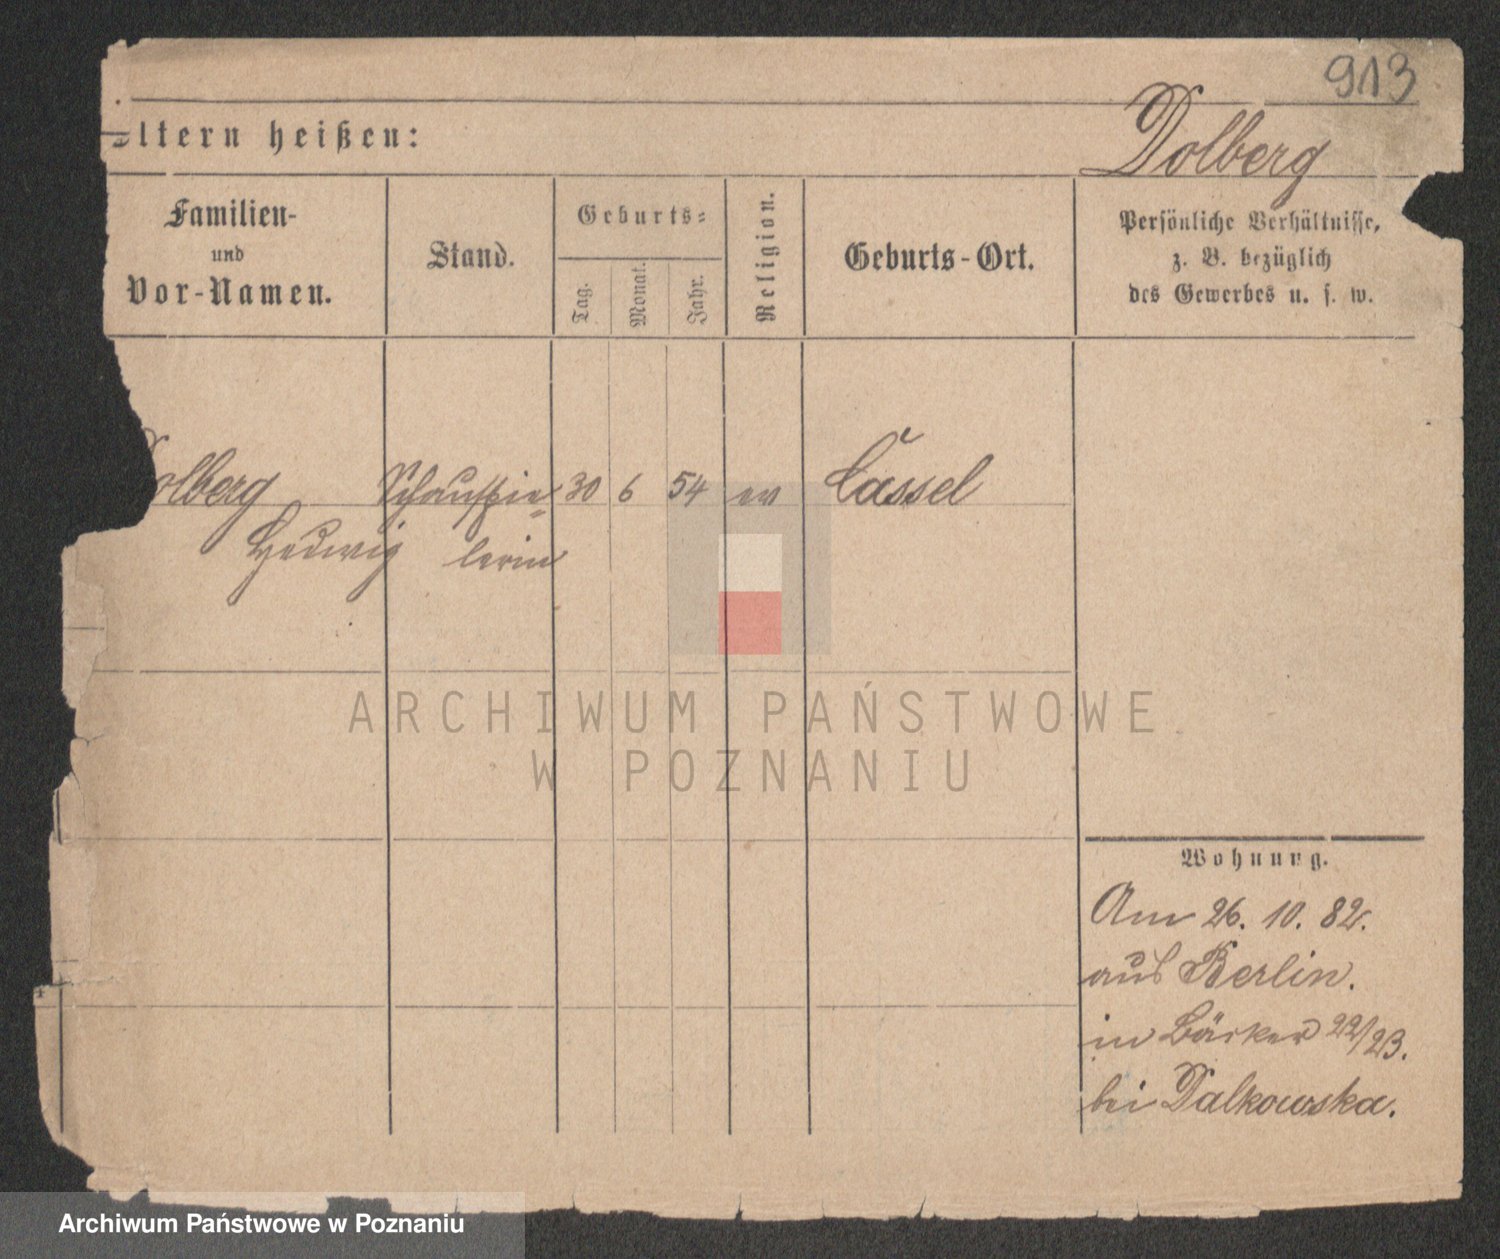 913
Eltern heißen:
Dolberg
Familien-
und
Vor-Namen.
Stand.
Geburts-
Tag.
Monat.
Jahr.
Religion.
Geburts-Ort.
Persönliche Verhältnisse,
z. B. bezüglich
des Gewerbes u. s. w.
Dolberg Schauspie= 30 6 54 ev Cassel
Hedwig lerin
Wohnung.
Am 26. 10. 82.
aus Berlin.
in Bäcker 22/23.
bei Dalkowska.
ARCHIWUM PAŃSTWOWE
W POZNANIU
Archiwum Państwowe w Poznaniu